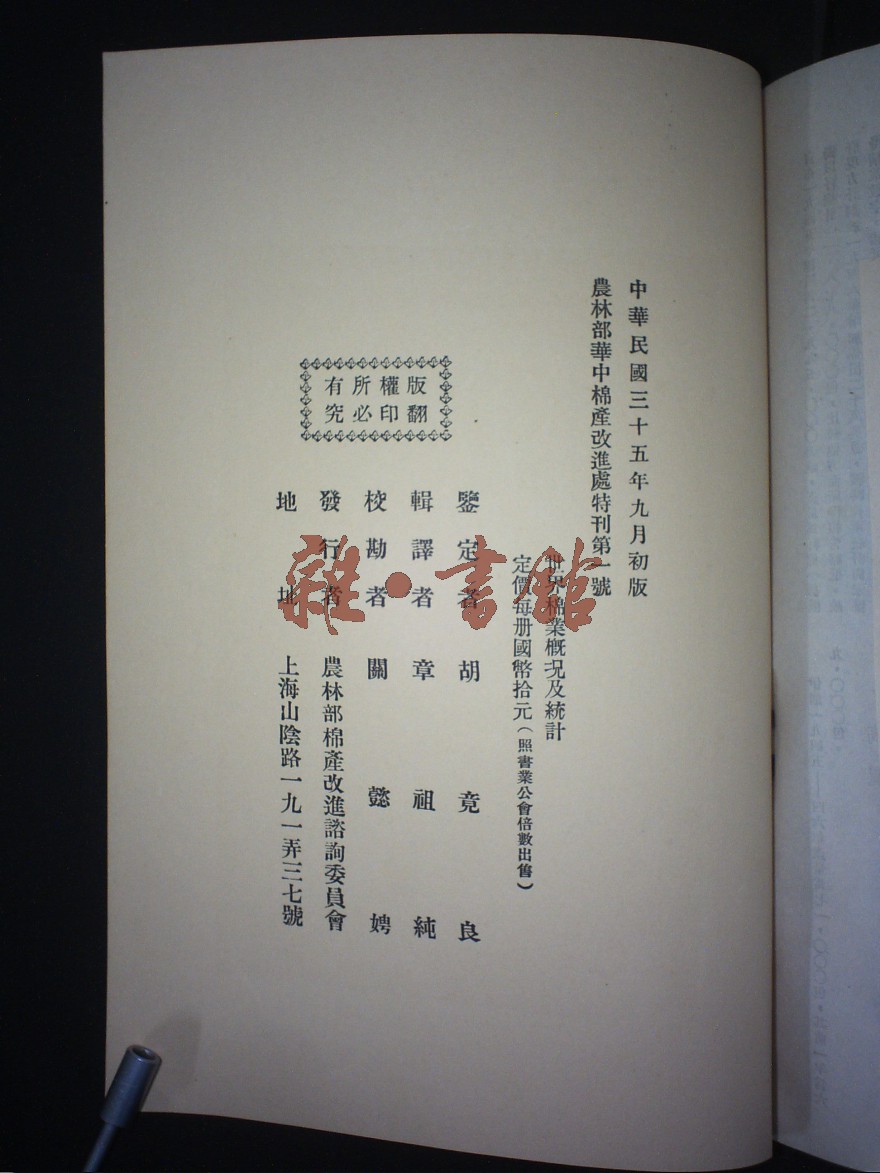 中華民國三十五年九月初版
農林部華中棉產改進處特刊第一號
世界棉業概況及統計
定價每册國幣拾元(照書業公會倍數出售)
鑒定者 胡竟良
輯譯者 章祖純
校勘者 關懿娉
發行者 農林部棉產改進諮詢委員會
地址 上海山陰路一九一弄三七號
版權所有
翻印必究
雜·書館